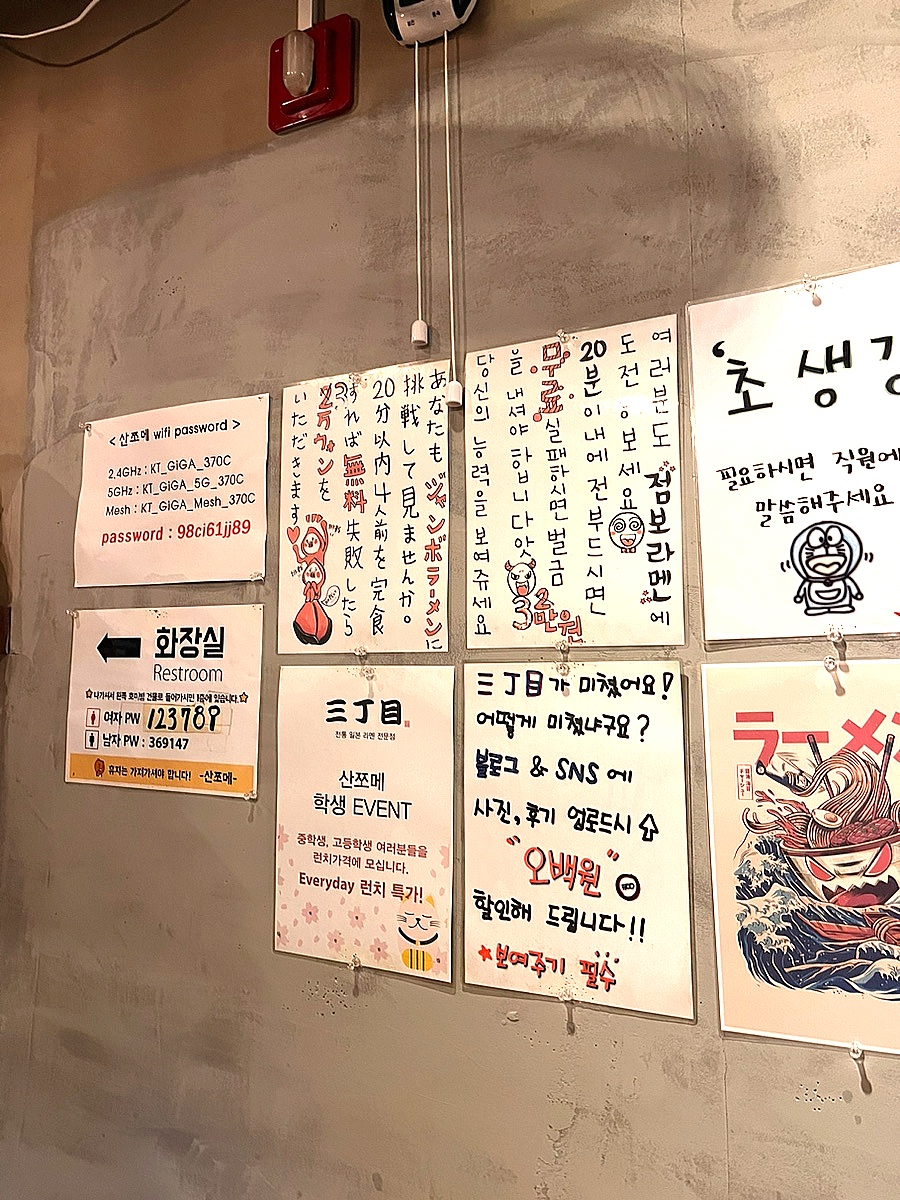 < 산쪼메 wifi password >
2.4GHz : KT_GiGA_370C
5GHz : KT_GiGA_5G_370C
Mesh : KT_GIGA_Mesh_370C
password : 98ci61jj89
あなたも ジャンボラーメンに
挑戦して見ませんか。
20分以内 4人前を完食
すれば 無料 失敗したら
2万ウォンを
いただきます
여러분도 점보라멘에
도전해보세요
20분이내에 전부드시면
무료, 실패하시면 벌금 2만원
을 내셔야 합니다 앗
당신의 능력을 보여쥬세요
‘초생강
필요하시면 직원에
말씀해주세요
화장실
Restroom
☆나가셔서 왼쪽 호미빙 건물로 들어가시면 1층에 있습니다.☆
여자 PW 123789
남자 PW : 369147
휴지는 가져가셔야 합니다! -산쪼메-
三丁目
전통 일본 라멘 전문점
산쪼메
학생 EVENT
중학생, 고등학생 여러분들을
런치가격에 모십니다.
Everyday 런치 특가!
三丁目가 미쳤어요!
어떻게 미쳤냐구요?
블로그 & SNS 에
사진, 후기 업로드시
"오백원"
할인해 드립니다!!
★보여주기 필수
ラーメン